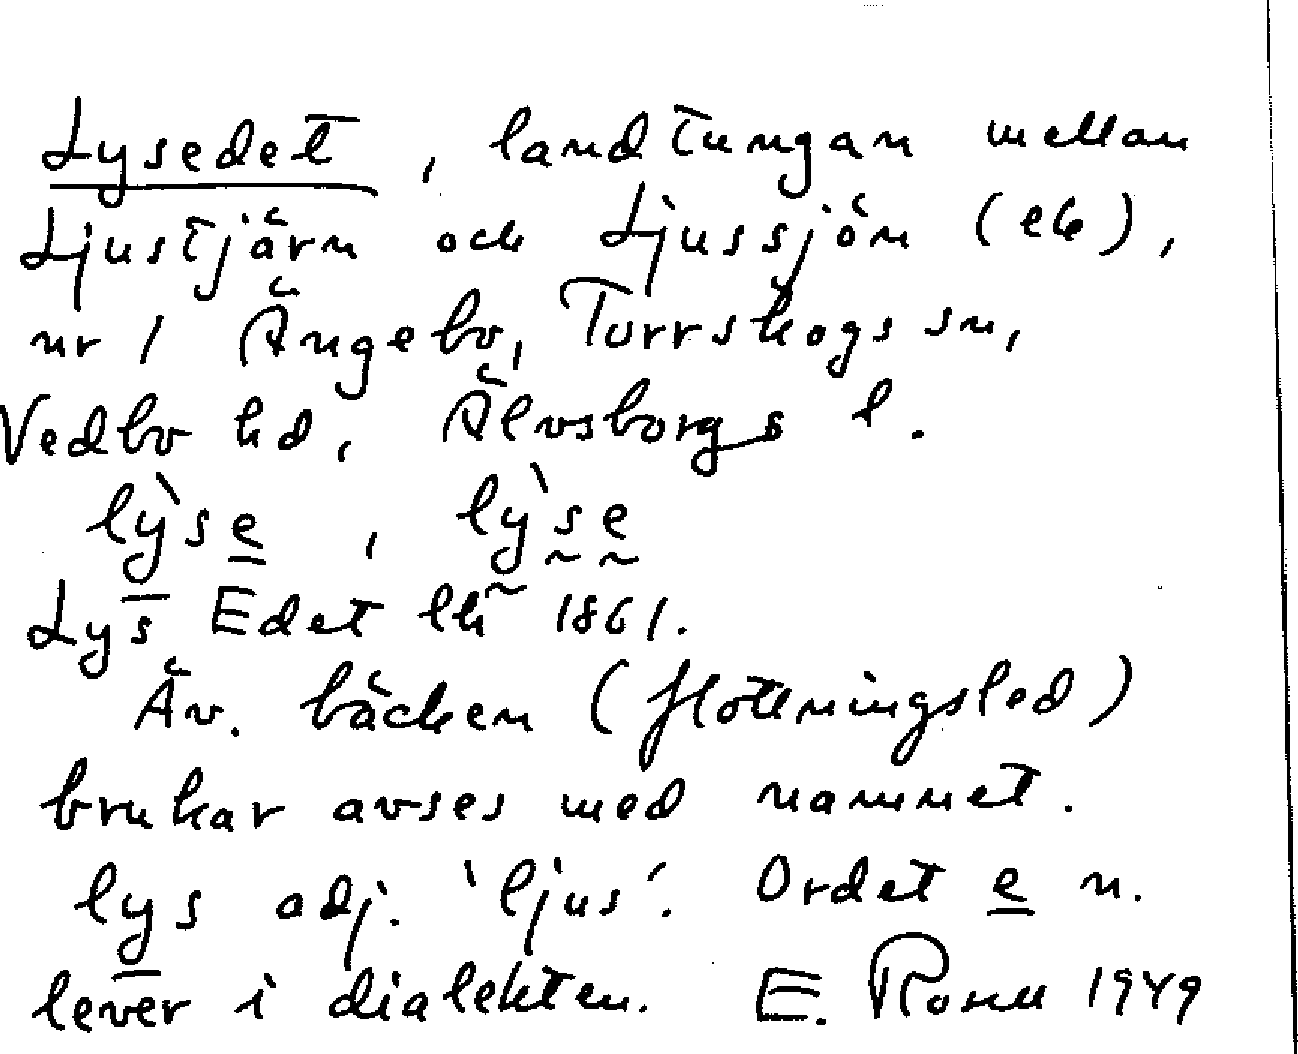 Lysedet, landtungan mellan
Ljustjärn och Ljussjön (ek),
nr 1 Ängebo, Torrskogs sn,
Vedbo hd, Älvsborgs l.
lỳse, lỳse
Lys Edet lk 1861.
Äv. bäcken (flottningsled)
brukar avses med namnet.
lys adj. 'ljus'. Ordet e n.
lever i dialekten. E. Rosell 1949